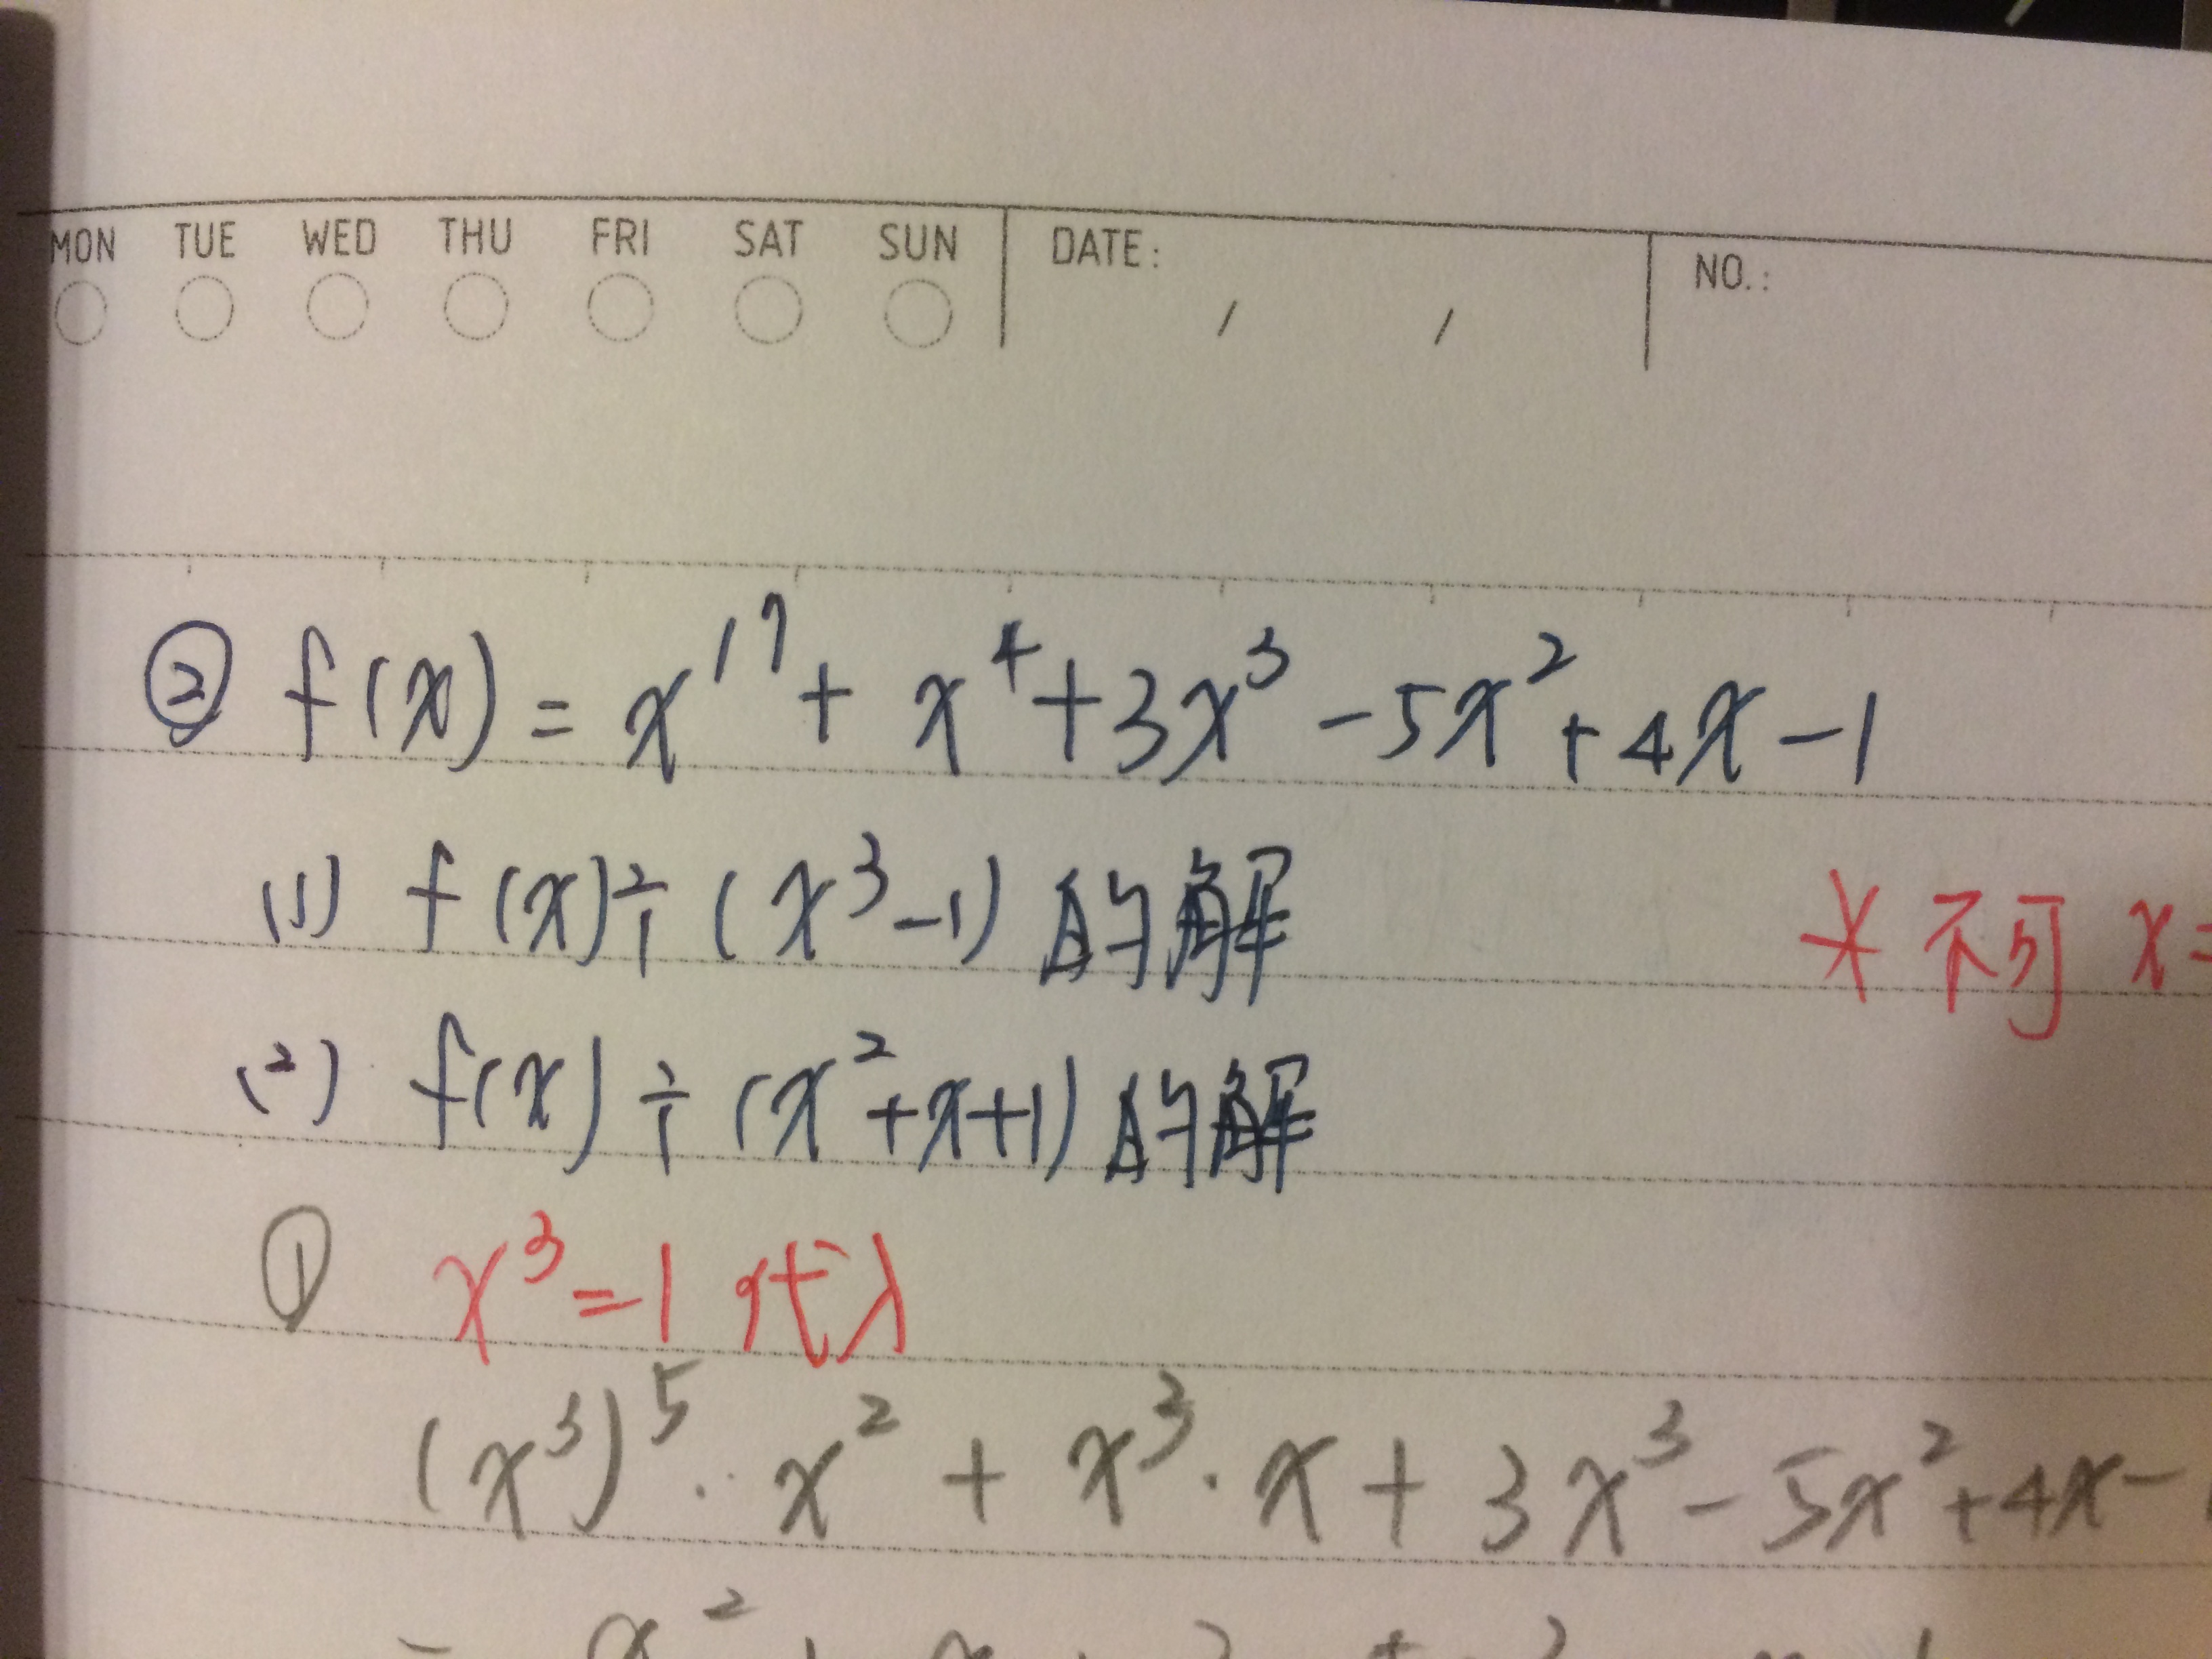 MON TUE WED THU FRI SAT SUN DATE: / / NO.:
② f(x) = x¹⁷ + x⁴ + 3x³ - 5x² + 4x - 1
(1) f(x) ÷ (x³-1) 的解
* 不可 x=
(2) f(x) ÷ (x²+x+1) 的解
① x³=1 代入
(x³)⁵ · x² + x³ · x + 3x³ - 5x² + 4x -